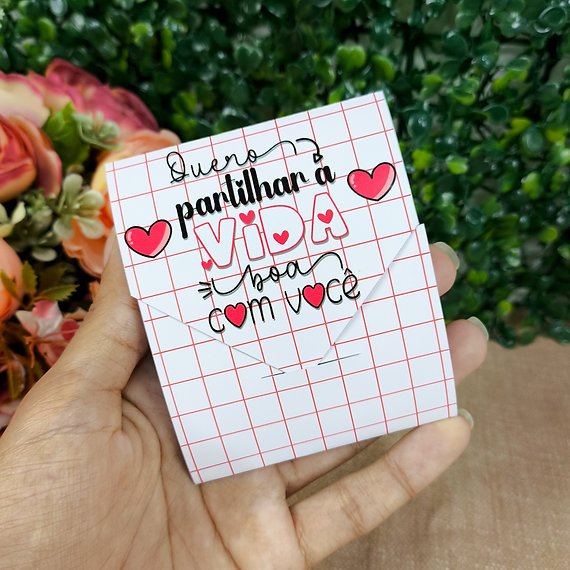 Quero
partilhar á
ViDA
boa
com você